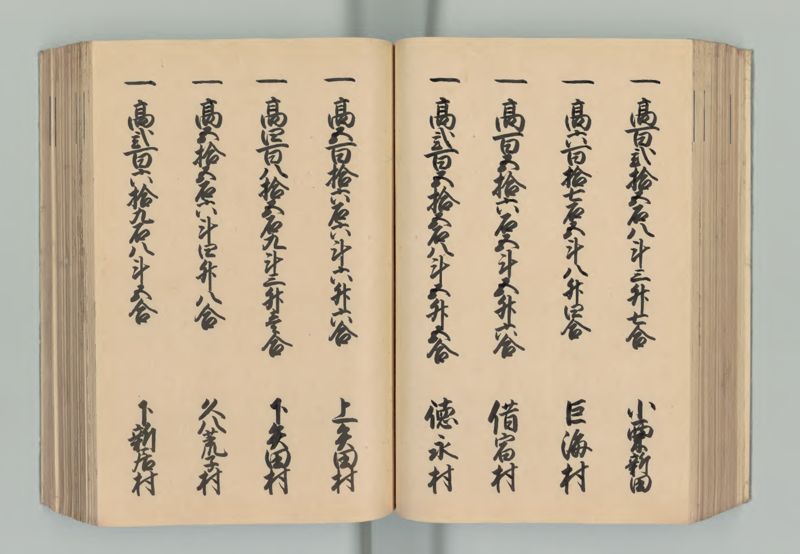 一 高百弐拾五石八斗三升七合 小栗新田
一 高六百拾七石五斗八升四合 巨海村
一 高百五拾六石五斗五升六合 借宿村
一 高弐百五拾五石八斗五升五合 徳永村
一 高五百拾六石六斗六升六合 上矢田村
一 高四百八拾五石九斗三升壱合 下矢田村
一 高五拾五石六斗四升八合 久八荒子村
一 高弐百六拾九石八斗五合 下新居村